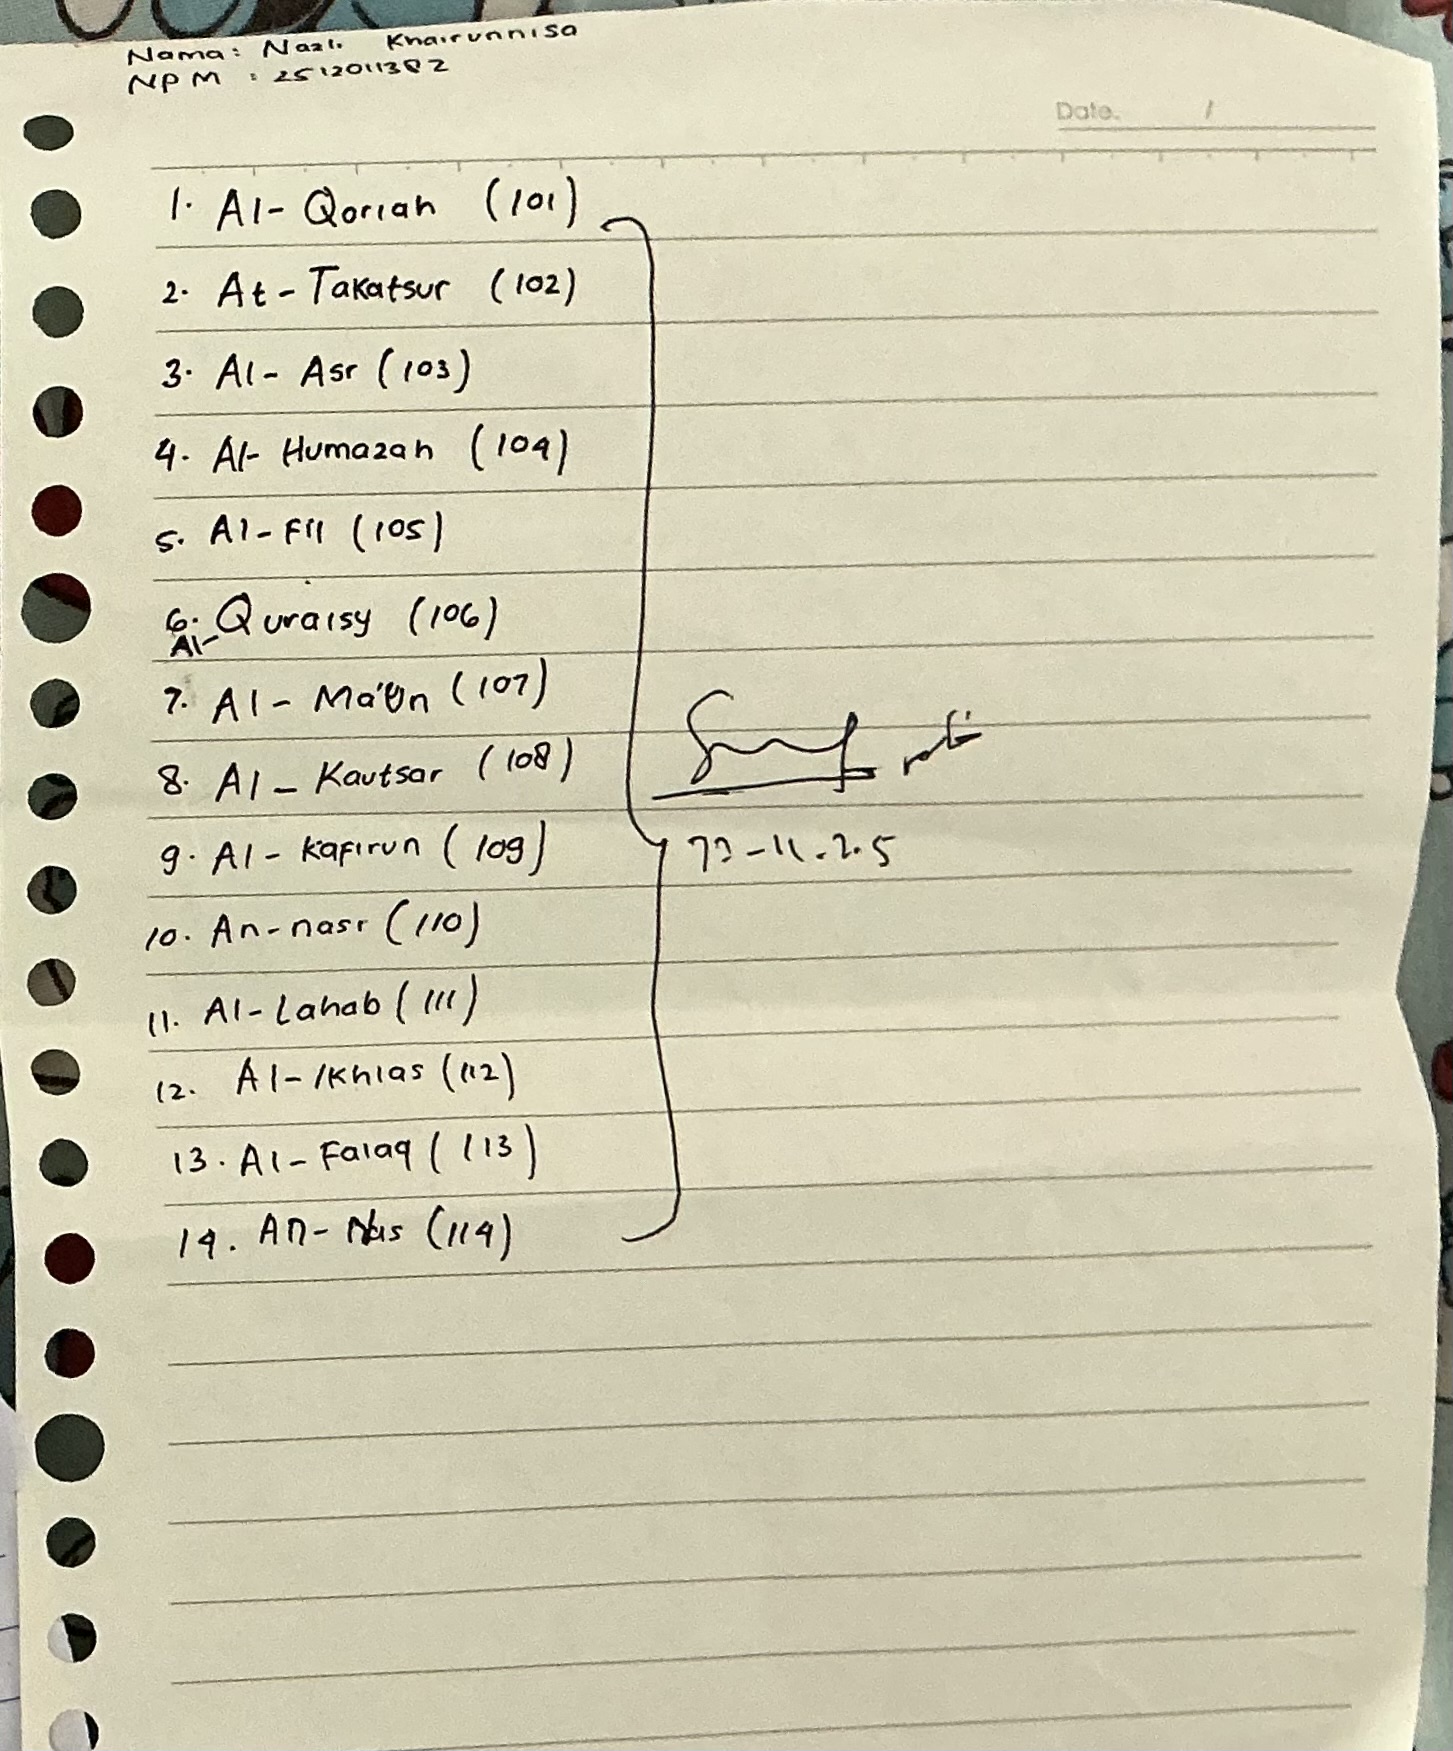 Nama: Nazli Khairunnisa
NPM : 2512011382
Date. /
1. Al- Qoriah (101)
2. At - Takatsur (102)
3. Al- Asr (103)
4. Al- Humazah (104)
5. Al- Fil (105)
6. Al- Quraisy (106)
7. Al - Ma'un (107)
8. Al - Kautsar (108)
9. Al - Kafirun (109)
10. An-nasr (110)
11. Al- Lahab (111)
12. Al- Ikhlas (112)
13. Al- Falaq (113)
14. An- Nas (114)